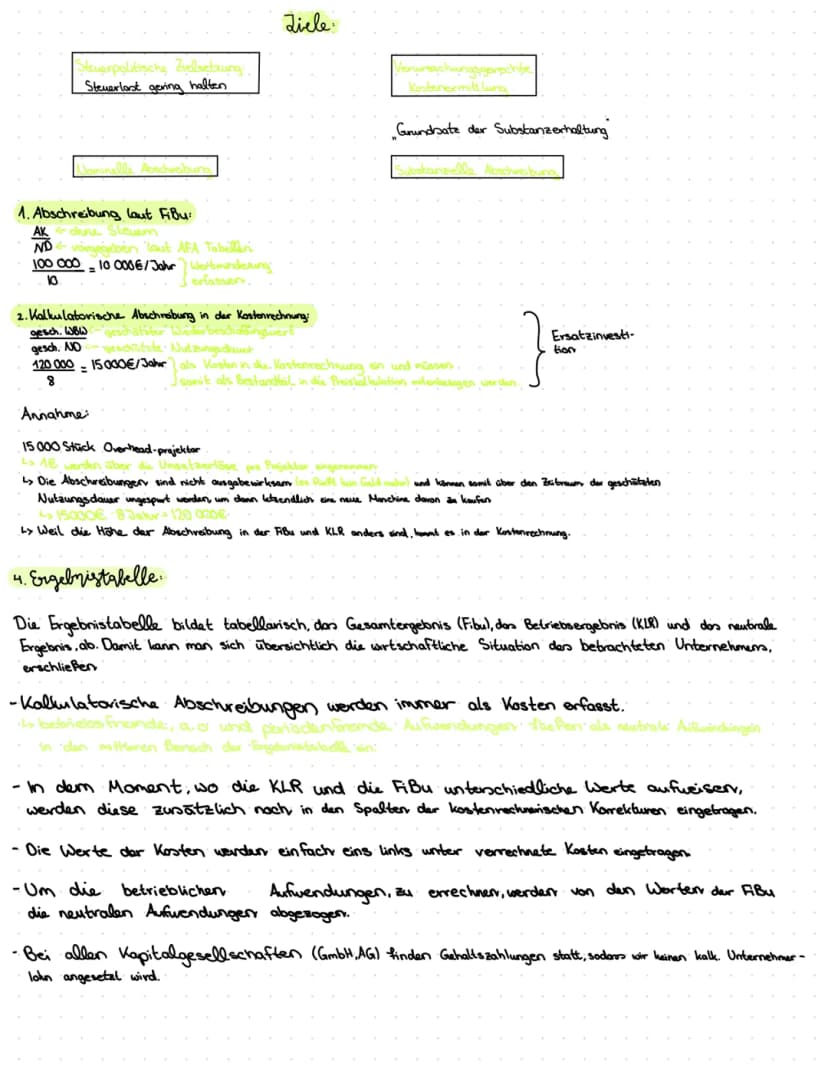 Ziele:
Steuerpolitische Zielsetzung:
Steuerlast gering halten
Verursachungsgerechte
Kostenermittlung
„Grundsatz der Substanzerhaltung"
Nominelle Abschreibung
Substanzielle Abschreibung
1. Abschreibung laut FiBu:
AK ← ohne Steuern
ND ← vorgegeben laut AFA Tabellen
100 000 = 10 000€/Jahr } Wertminderung
10 erfassen
2. Kalkulatorische Abschreibung in der Kostenrechnung:
gesch. WBW ← geschätzter Wiederbeschaffungswert
gesch. ND ← geschätzte Nutzungsdauer
120 000 = 15 000€/Jahr } als Kosten in die Kostenrechnung ein und müssen
8 somit als Bestandteil in die Preiskalkulation miteinbezogen werden.
Ersatzinvesti-
tion
Annahme:
15 000 Stück Overhead-projektor
↳ 1€ werden über die Umsatzerlöse pro Projektor eingenommen
↳ Die Abschreibungen sind nicht ausgabewirksam und können somit über den Zeitraum der geschätzten
Nutzungsdauer angespart werden, um dann letzendlich eine neue Maschine davon zu kaufen
↳ 15000€ · 8 Jahr = 120 000€
↳ Weil die Höhe der Abschreibung in der FiBu und KLR anders sind, kommt es in der Kostenrechnung.
4. Ergebnistabelle:
Die Ergebnistabelle bildet tabellarisch, das Gesamtergebnis (Fibu), das Betriebsergebnis (KLR) und das neutrale
Ergebnis, ab. Damit kann man sich übersichtlich die wirtschaftliche Situation des betrachteten Unternehmens,
erschließen
- Kalkulatorische Abschreibungen werden immer als Kosten erfasst.
↳ betriebsfremde, a.o und periodenfremde Aufwendungen fließen als neutrale Aufwendungen
in den mittleren Bereich der Ergebnistabelle ein.
- In dem Moment, wo die KLR und die FiBu unterschiedliche Werte aufweisen,
werden diese zusätzlich noch in den Spalten der kostenrechnerischen Korrekturen eingetragen.
- Die Werte der Kosten werden einfach eins links unter verrechnete Kosten eingetragen.
- Um die betrieblichen Aufwendungen, zu errechnen, werden von den Werten der FiBu
die neutralen Aufwendungen abgezogen.
- Bei allen Kapitalgesellschaften (GmbH, AG) finden Gehaltszahlungen statt, sodass wir keinen kalk. Unternehmer-
lohn angesetzt wird.